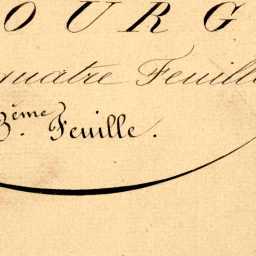 OURG
quatre Feuille
3ème Feuille.